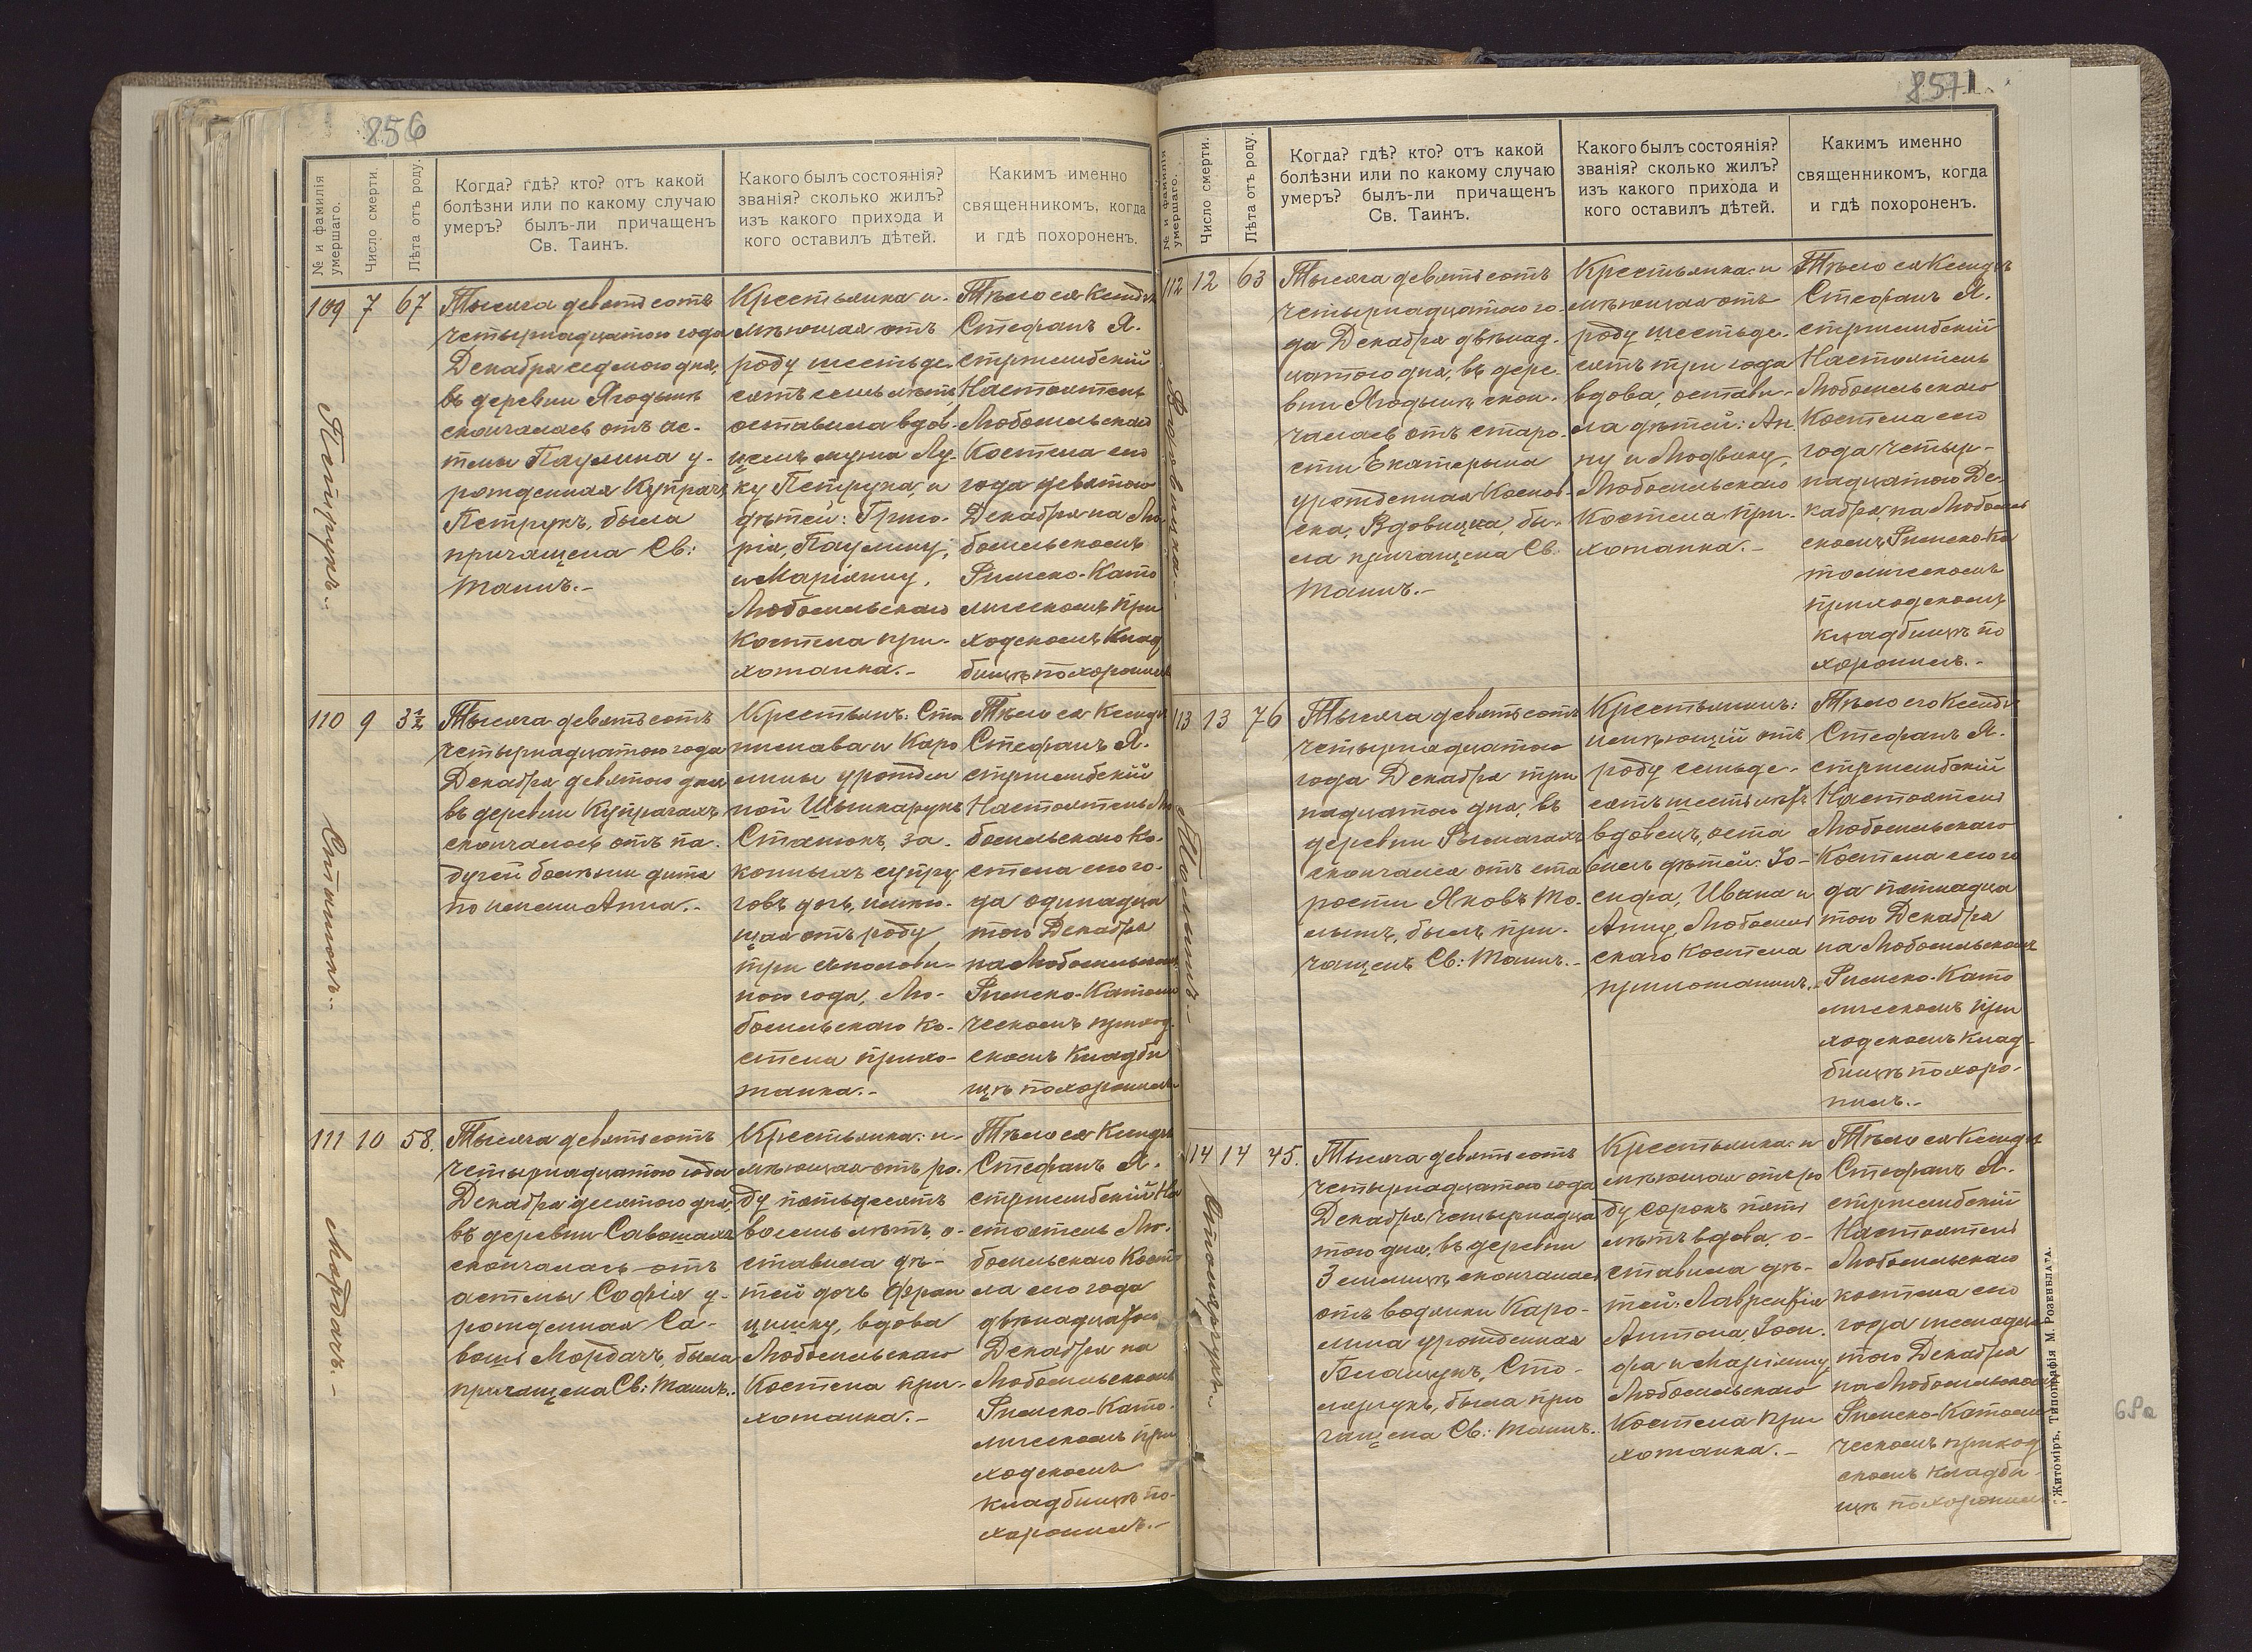 856
№ и фамилія умершаго.
Число смерти.
Лѣта отъ роду.
Когда? гдѣ? кто? отъ какой
болѣзни или по какому случаю
умеръ? былъ-ли причащенъ
Св. Таинъ.
Какого былъ состоянія?
званія? сколько жилъ?
изъ какого прихода и
кого оставилъ дѣтей.
Какимъ именно
священникомъ, когда
и гдѣ похороненъ.
109
Петрукъ.
7
67
Тысяча девятьсотъ
четырнадцатого года
Декабря седьмого дня,
въ деревни Ягодынѣ
скончалась отъ ас-
тмы Паулина у-
рожденная Купрачъ
Петрукъ, была
причащена Св:
Таинъ.-
Крестьянка и-
мѣющая отъ
роду шестьде-
сятъ семь лѣтъ,
оставила вдов-
цемъ мужа Лу-
ку Петрука, и
дѣтей: Григо-
рія, Паулину,
и Маріянну,
Любомльскаго
Костела при-
хожанка.-
Тѣло ея Ксендзъ
Стефанъ Я-
стржембскій
Настоятель
Любомльскаго
Костела сего
года девятого
Декабря на Лю-
бомльскомъ
Римско-Като
лическомъ при
ходскомъ Клад
бищѣ похоронилъ
110
Сташюкъ.
9
3½
Тысяча девятьсотъ
четырнадцатого года
Декабря девятого дня
въ деревни Купрачахъ
скончалось отъ па-
дучей болѣзни дитя
по имени Анна.-
Крестьянъ: Ста
нислава и Каро
лины урожден
ной Шинкарукъ
Сташюкъ, за-
конныхъ супру
говъ дочь, имѣю-
щая отъ роду
три съ полови-
ною года, Лю-
бомльскаго Ко-
стела прихо-
жанка.-
Тѣло ея Ксендзъ
Стефанъ Я-
стржембскій
Настоятель Лю
бомльскаго Ко-
стела сего го-
да одинадца
того Декабря
на Любомльскомъ
Римско-Католи
ческомъ приход-
скомъ Кладби
щѣ похоронилъ
111
Мордачъ.-
10
58.
Тысяча девятьсотъ
четырнадцатого года
Декабря десятого дня,
въ деревни Савошахъ
скончалась отъ
астмы Софія у-
рожденная Са-
вошъ Мордачъ, была
причащена Св: Таинъ.
Крестьянка: и-
мѣющая отъ ро-
ду пятьдесятъ
восемь лѣтъ, о-
ставила дѣ-
тей дочь Фран
цишку, вдова
Любомльскаго
Костела при-
хожанка.-
Тѣло ея Ксендзъ
Стефанъ Я-
стржембскій На
стоятель Лю-
бомльскаго Косте
ла сего года
двѣнадцатого
Декабря на
Любомльскомъ
Римско-Като-
лическомъ при
ходскомъ
кладбищѣ по-
хоронилъ.-
8571
№ и фамилія умершаго.
Число смерти.
Лѣта отъ роду.
Когда? гдѣ? кто? отъ какой
болѣзни или по какому случаю
умеръ? былъ-ли причащенъ
Св. Таинъ.
Какого былъ состоянія?
званія? сколько жилъ?
изъ какого прихода и
кого оставилъ дѣтей.
Какимъ именно
священникомъ, когда
и гдѣ похороненъ.
112
12
63
Тысяча девятьсотъ
четырнадцатого го-
да Декабря двѣнад-
цатого дня, въ дере-
вни Ягодынѣ скон-
чалась отъ старо-
сти Екатерына
урожденная
Вдовицка, бы-
ла причащена Св:
Таинъ.-
Крестьянка: и
мѣющая отъ
роду шестьде-
сятъ три года
вдова, остави-
ла дѣтей: Ан-
ну и Людвику,
Любомльскаго
Костела при-
хожанка.-
Тѣло ея Ксендзъ
Стефанъ Я-
стржембскій
Настоятель
Любомльскаго
Костела сего
года четыр-
надцатого Де-
кабря, на Любомль
скомъ Римско-Ка
толическомъ
приходскомъ
кладбищѣ по
хоронилъ.-
113
13
76
Тысяча девятьсотъ
четырнадцатого
года Декабря три
надцатого дня, въ
деревни Рымачахъ
скончался отъ ста
рости Яковъ
былъ при-
чащенъ Св: Таинъ.-
Крестьянинъ:
имѣющій отъ
роду семьде-
сятъ шесть лѣтъ
вдовецъ, оста
вилъ дѣтей: Іо-
сифа, Ивана и
Анну, Любомль
скаго Костела
прихожанинъ.
Тѣло его Ксендзъ
Стефанъ Я-
стржембскій
Настоятель
Любомльскаго
Костела сего го
да пятнадца
того Декабря
на Любомльскомъ
Римско-Като
лическомъ при
ходскомъ клад-
бищѣ похоро-
нилъ.-
114
Столярукъ.
14
45.
Тысяча девятьсотъ
четырнадцатого года
Декабря четырнадца
того дня, въ деревни
скончалась
отъ водянки Каро-
лина урожденная
Сто-
лярукъ, была при
чащена Св: Таинъ.
Крестьянка: и
мѣющая отъ ро
ду сорокъ пять
лѣтъ вдова, о-
ставила дѣ-
тей: Лаврентія
Антона, Іоси-
фа и Маріянну
Любомльскаго
Костела при
хожанка.-
Тѣло ея Ксендзъ
Стефанъ Я-
стржембскій
Настоятель
Любомльскаго
костела сего
года шеснадца
того Декабря
на Любомльскомъ
Римско-Католи
ческомъ приход
скомъ кладби-
щѣ похоронилъ
Житомiръ, Типографія М. Розенблата.